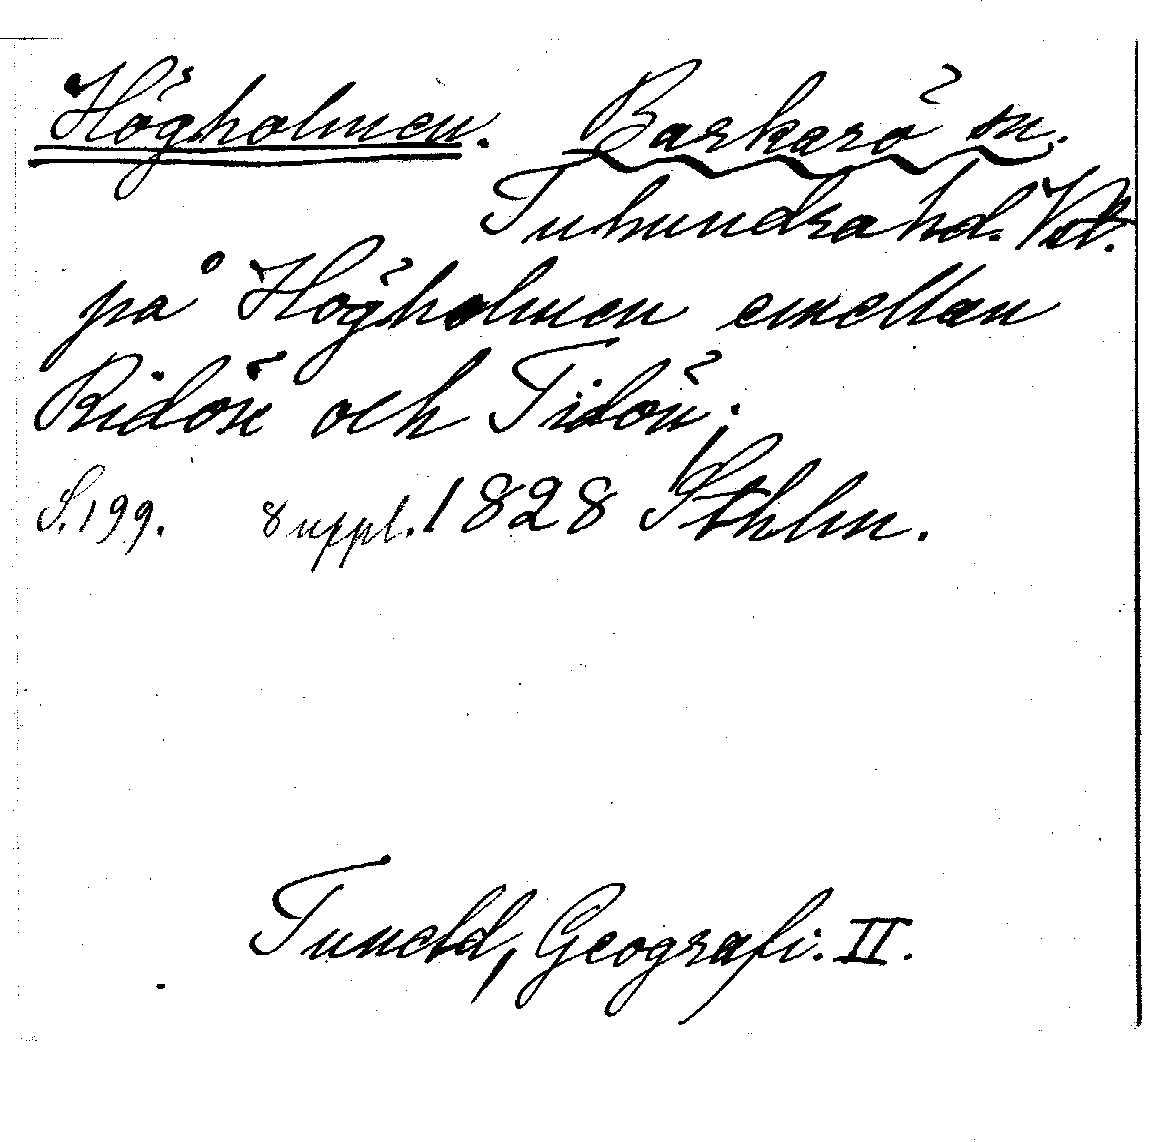 Högholmen. Barkarö sn.
Tuhundra hd. Vstm.
på Högholmen emellan
Ridön och Tidön;
S. 199. Suppl. 1828 Sthlm.
Tuneld, Geografi. II.